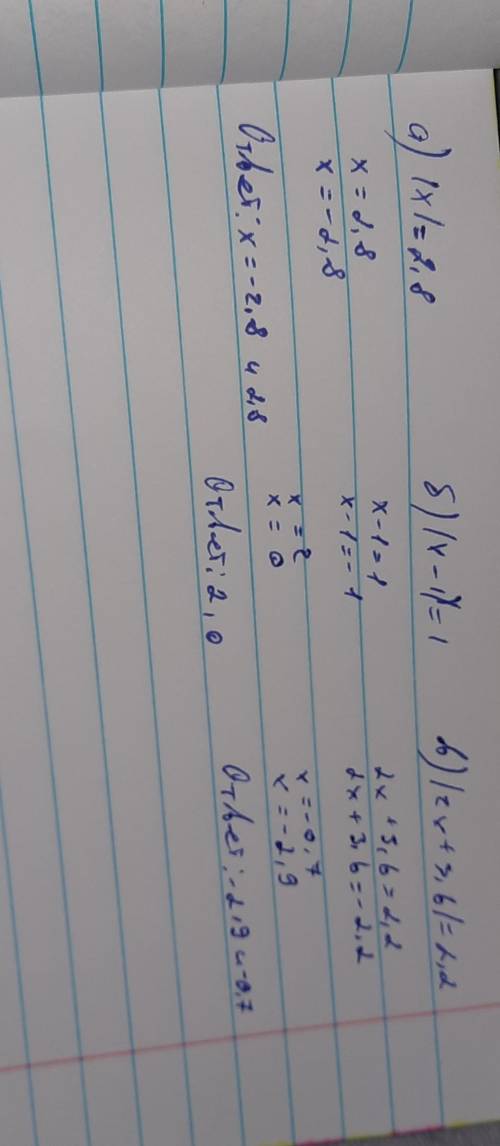 а) |x| = 2,8
x = 2,8
x = -2,8
Ответ: x = -2,8 и 2,8
б) |x - 1| = 1
x - 1 = 1
x - 1 = -1
x = 2
x = 0
Ответ: 2, 0
в) |2x + 3,6| = 2,2
2x + 3,6 = 2,2
2x + 3,6 = -2,2
x = -0,7
x = -2,9
Ответ: -2,9 и -0,7